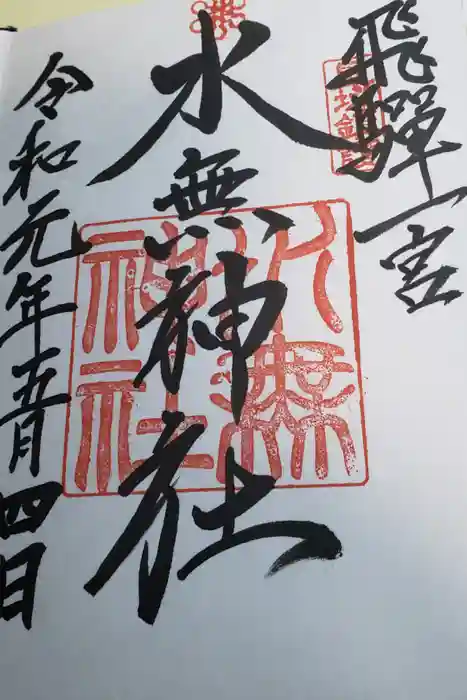 飛騨一宮
水無神社
水無神社
令和元年五月四日